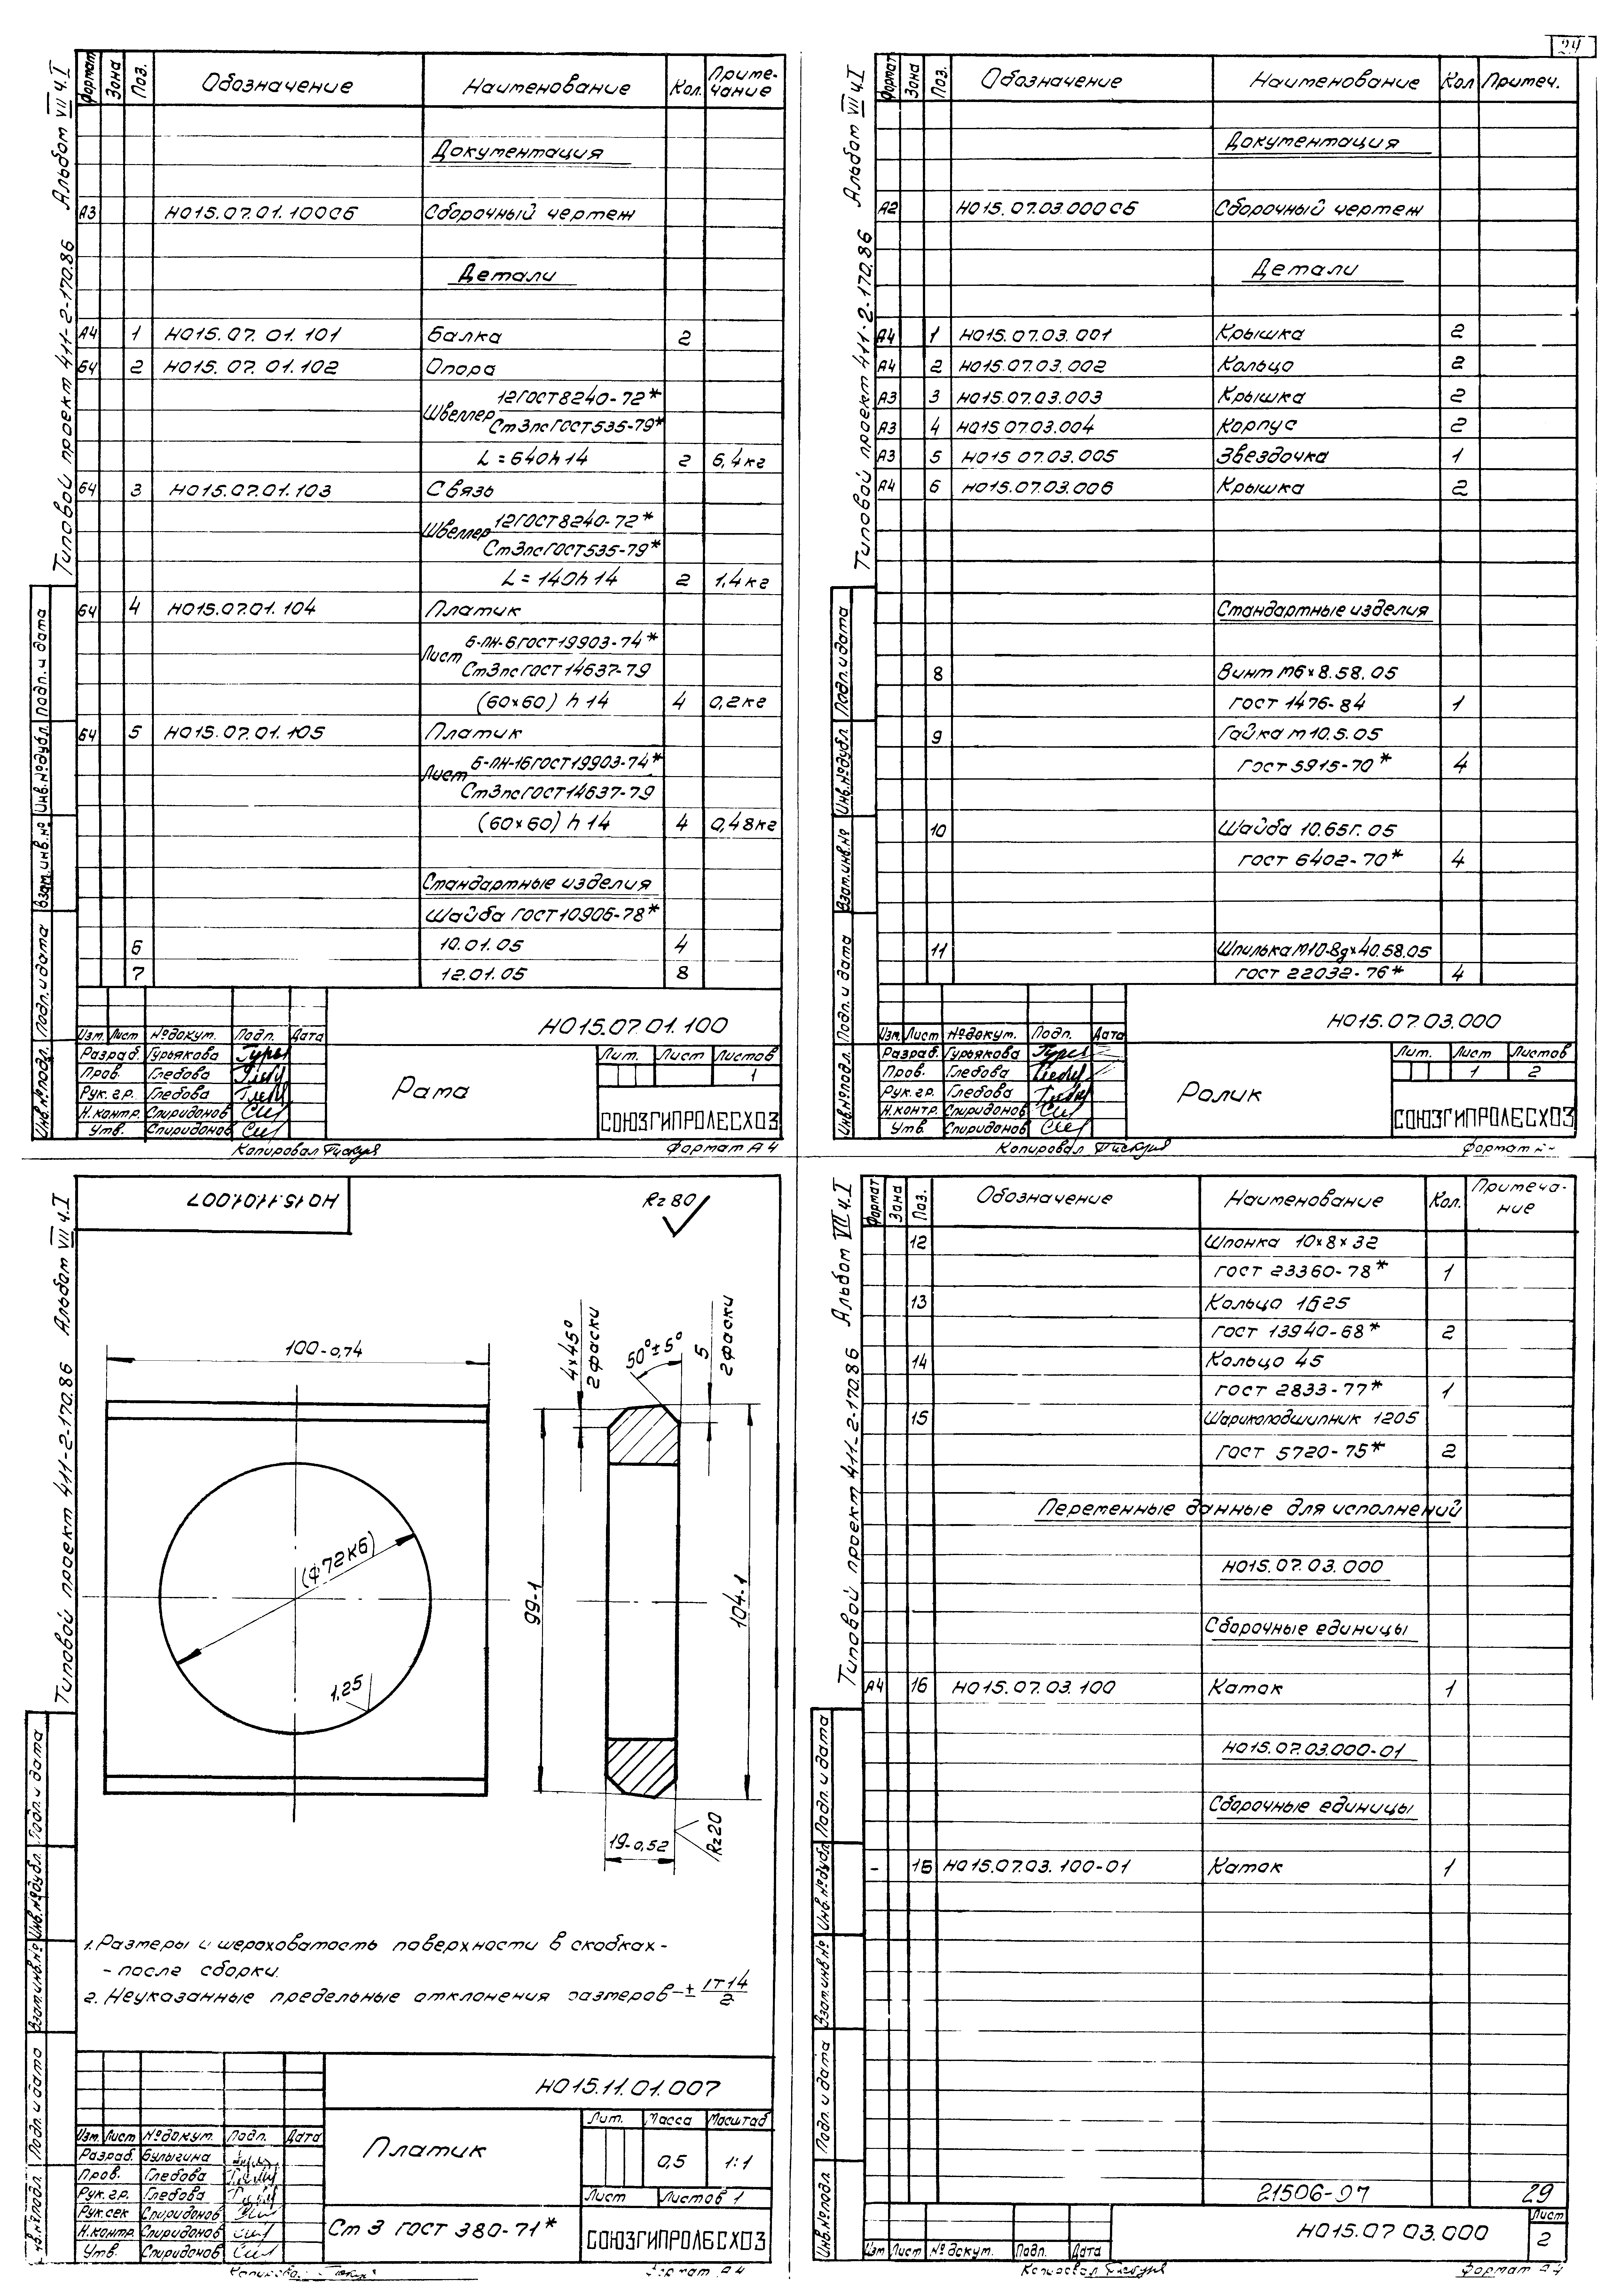 24
Альбом VII ч.I
Типовой проект 411-2-170.86
Формат Зона Поз. Обозначение Наименование Кол. Приме-чание
Документация
А3 НО15.07.01.100СБ Сборочный чертеж
Детали
А4 1 НО15.07.01.101 Балка 2
БЧ 2 НО15.07.01.102 Опора
Швеллер 12ГОСТ8240-72*
Ст3псГОСТ535-79*
L=640h14 2 6,4кг
БЧ 3 НО15.07.01.103 Связь
Швеллер 12ГОСТ8240-72*
Ст3псГОСТ535-79*
L=140h14 2 1,4кг
БЧ 4 НО15.07.01.104 Платик
Лист 6-ПН-6ГОСТ19903-74*
Ст3псГОСТ14637-79
(60×60) h14 4 0,2кг
БЧ 5 НО15.07.01.105 Платик
Лист 6-ПН-16ГОСТ19903-74*
Ст3псГОСТ14637-79
(60×60) h14 4 0,48кг
Стандартные изделия
Шайба ГОСТ10906-78*
6 10.01.05 4
7 12.01.05 8
Инв.№подл. Подп.и дата Взам.инв.№ Инв.№дубл. Подп.и дата
НО15.07.01.100
Изм. Лист №докум. Подп. Дата
Разраб. Гурьякова
Пров. Глебова
Рук.гр. Глебова
Н.контр. Спиридонов
Утв. Спиридонов
Рама
Лит. Лист Листов
1
СОЮЗГИПРОЛЕСХОЗ
Копировал Формат А4
Альбом VII ч.I
Типовой проект 411-2-170.86
Формат Зона Поз. Обозначение Наименование Кол Примеч.
Документация
А2 НО15.07.03.000СБ Сборочный чертеж
Детали
А4 1 НО15.07.03.001 Крышка 2
А4 2 НО15.07.03.002 Кольцо 2
А3 3 НО15.07.03.003 Крышка 2
А3 4 НО15.07.03.004 Корпус 2
А3 5 НО15.07.03.005 Звездочка 1
А4 6 НО15.07.03.006 Крышка 2
Стандартные изделия
8 Винт М6×8.58.05
ГОСТ 1476-84 1
9 Гайка М10.5.05
ГОСТ 5915-70* 4
10 Шайба 10.65Г.05
ГОСТ 6402-70* 4
11 Шпилька М10-8g×40.58.05
ГОСТ 22032-76* 4
Инв.№подл. Подп.и дата Взам.инв.№ Инв.№дубл. Подп.и дата
НО15.07.03.000
Изм. Лист №докум. Подп. Дата
Разраб. Гурьякова
Пров. Глебова
Рук.гр. Глебова
Н.контр. Спиридонов
Утв. Спиридонов
Ролик
Лит. Лист Листов
1 2
СОЮЗГИПРОЛЕСХОЗ
Копировал Формат
Альбом VII ч.I
Типовой проект 411-2-170.86
НО15.11.01.007
Rz80
100-0,74
4×45°
2 фаски
50°±5°
5
2 фаски
(Ф72К6)
99-1
104-1
1,25
19-0,52
Rz20
1. Размеры и шероховатость поверхности в скобках-
- после сборки.
2. Неуказанные предельные отклонения размеров ± IT14/2
НО15.11.01.007
Изм. Лист №докум. Подп. Дата
Разраб. Булыгина
Пров. Глебова
Рук.гр. Глебова
Рук.сек Спиридонов
Н.контр. Спиридонов
Утв. Спиридонов
Платик
Лит. Масса Масштаб
0,5 1:1
Лист Листов 1
Ст 3 ГОСТ 380-71*
СОЮЗГИПРОЛЕСХОЗ
Инв.№подл. Подп.и дата Взам.инв.№ Инв.№дубл. Подп.и дата
Альбом VII ч.I
Типовой проект 411-2-170.86
Формат Зона Поз. Обозначение Наименование Кол. Примеча-ние
12 Шпонка 10×8×32
ГОСТ 23360-78* 1
13 Кольцо 1Б25
ГОСТ 13940-68* 2
14 Кольцо 45
ГОСТ 2833-77* 1
15 Шарикоподшипник 1205
ГОСТ 5720-75* 2
Переменные данные для исполнений
НО15.07.03.000
Сборочные единицы
А4 16 НО15.07.03.100 Каток 1
НО15.07.03.000-01
Сборочные единицы
- 16 НО15.07.03.100-01 Каток 1
21506-07 29
НО15.07 03.000
Лист
2
Изм Лист №докум. Подп. Дата
Инв.№подл Подп.и дата Взам.инв.№ Инв.№дубл. Подп.и дата
Копировал Формат А4